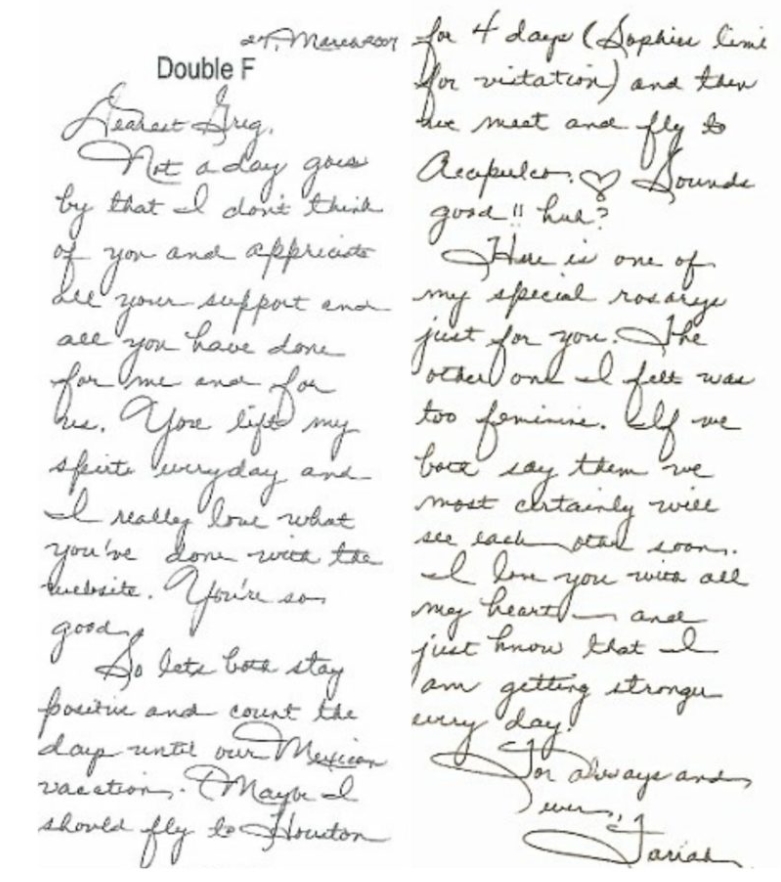 27, March 2007
Double F
Dearest Greg,
Not a day goes
by that I don't think
of you and appriciate
all your support and
all you have done
for me and for
us. You lift my
spirits everyday and
I really love what
you've done with the
website. You're so
good.
So lets both stay
positive and count the
days until our Mexican
vacation. (Maybe I
should fly to Houston
for 4 days (Sophies time
for visitation) and then
we meet and fly to
Acapulco. ♡ Sounds
good!! huh?
Here is one of
my special rosarys
just for you. The
other one I felt was
too feminine. If we
both say them we
most certainly will
see each other soon.
I love you with all
my heart — and
just know that I
am getting stronger
every day!
For always and
ever,
Farrah